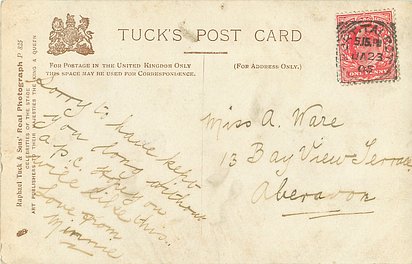 TUCK'S POST CARD
FOR POSTAGE IN THE UNITED KINGDOM ONLY
THIS SPACE MAY BE USED FOR CORRESPONDENCE.
(FOR ADDRESS ONLY.)
Raphael Tuck & Sons' Real Photograph P 825
CELEBRITIES OF THE STAGE
ART PUBLISHERS TO THEIR MAJESTIES THE KING & QUEEN
Sorry to have kept
you long without
a p.c. Hope you
will like this.
Love from
Minnie
Miss A. Ware
13 Bay View Terrace
Aberavon
ONE PENNY
MR 23